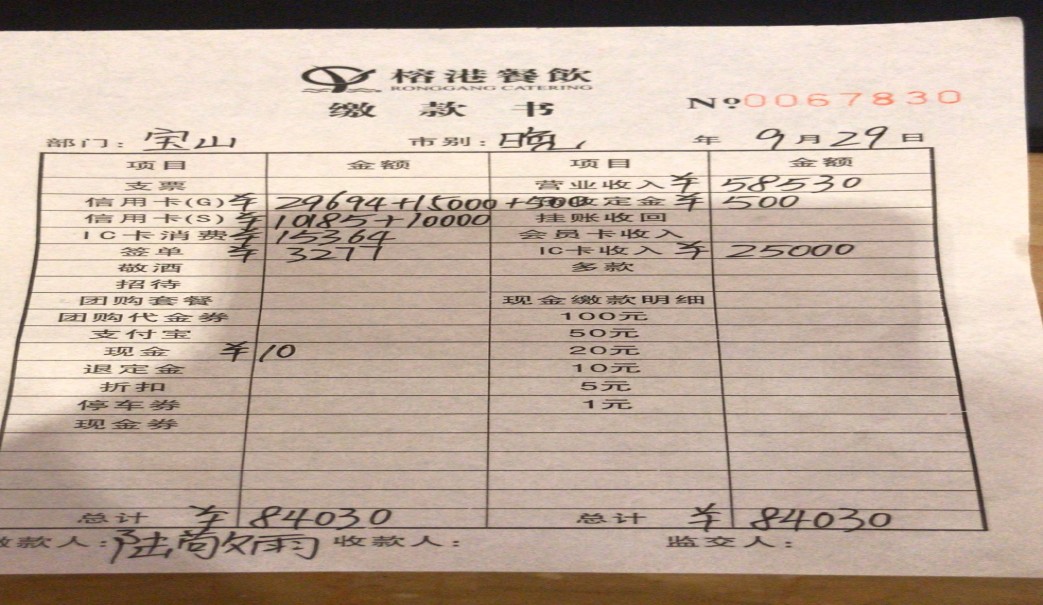 榕港餐飲
RONGGANG CATERING
缴款书
№0067830
部门：宝山 市别：晚 年 9月29日
项目 金额 项目 金额
支票 营业收入 ¥ 58530
信用卡(G) ¥ 29694+15000+500 收定金 ¥ 500
信用卡(S) ¥ 10185+10000 挂账收回
IC卡消费 ¥ 15364 会员卡收入
签单 ¥ 3277 IC卡收入 ¥ 25000
敬酒 多款
招待
团购套餐 现金缴款明细
团购代金券 100元
支付宝 50元
现金 ¥10 20元
退定金 10元
折扣 5元
停车券 1元
现金券
总计 ¥ 84030 总计 ¥ 84030
缴款人：陆敬雨 收款人： 监交人：